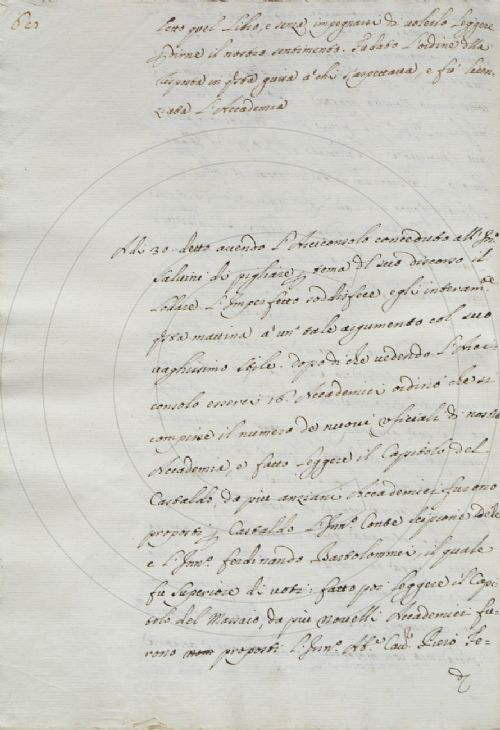 letto quel Libro, e senza impegnarsi di volerlo leggere
dirne il nostro sentimento. Fu dato l'ordine dlla
risposta in qsta guisa a chi s'aspettava, e fù licen-
ziata l'Accademia
Adi 30. detto avendo l'Arciconsolo conceduto all' Inn.
Salvini di pigliare p tema dl suo discorso il
Lodare l'Imperfetto soddisfece egli interam.e
qsta mattina a un tale argumento col suo
vaghissimo stile. dopo di che vedendo l'Arci-
consolo esserci 16. Accademici ordinò che si
compisse il numero de nuovi ufiziali di nostra
Accademia, e fatto leggere il Capitolo del
Castaldo, da più anziani Accademici furono
proposti p Castaldo l'Inn.o Conte Scipione
e l'Inn.o Ferdinando Bartolommei, il quale
fu Superiore di voti: fatto poi leggere il Capi-
tolo del Massaio, da più novelli Accademici fu-
rono proposti l'Inn.o Ab.e Cav.e Piero Fe-